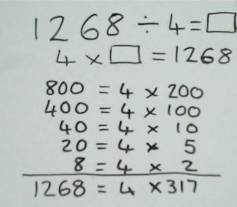 1268 ÷ 4 = □
4 × □ = 1268
800 = 4 × 200
400 = 4 × 100
40 = 4 × 10
20 = 4 × 5
8 = 4 × 2
1268 = 4 × 317